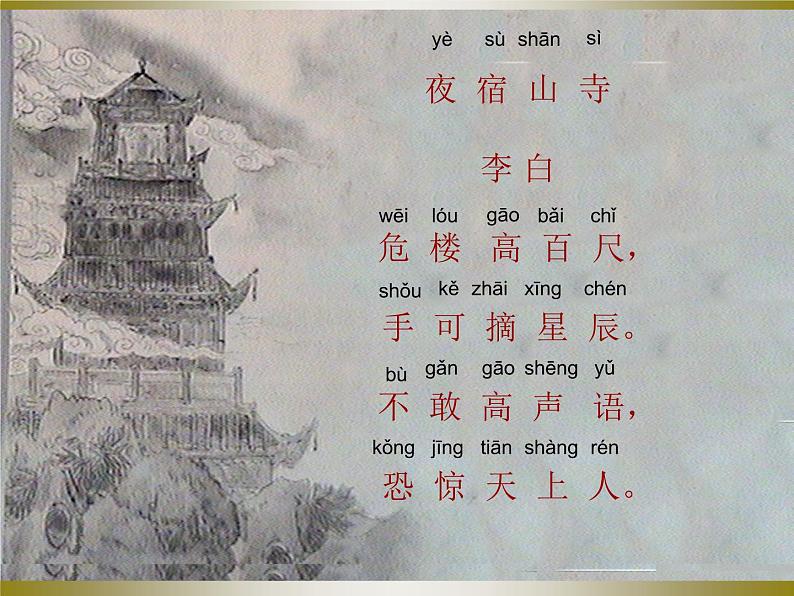 yè sù shān sì
夜宿山寺
李白
wēi lóu gāo bǎi chǐ
危楼高百尺，
shǒu kě zhāi xīng chén
手可摘星辰。
bù gǎn gāo shēng yǔ
不敢高声语，
kǒng jīng tiān shàng rén
恐惊天上人。